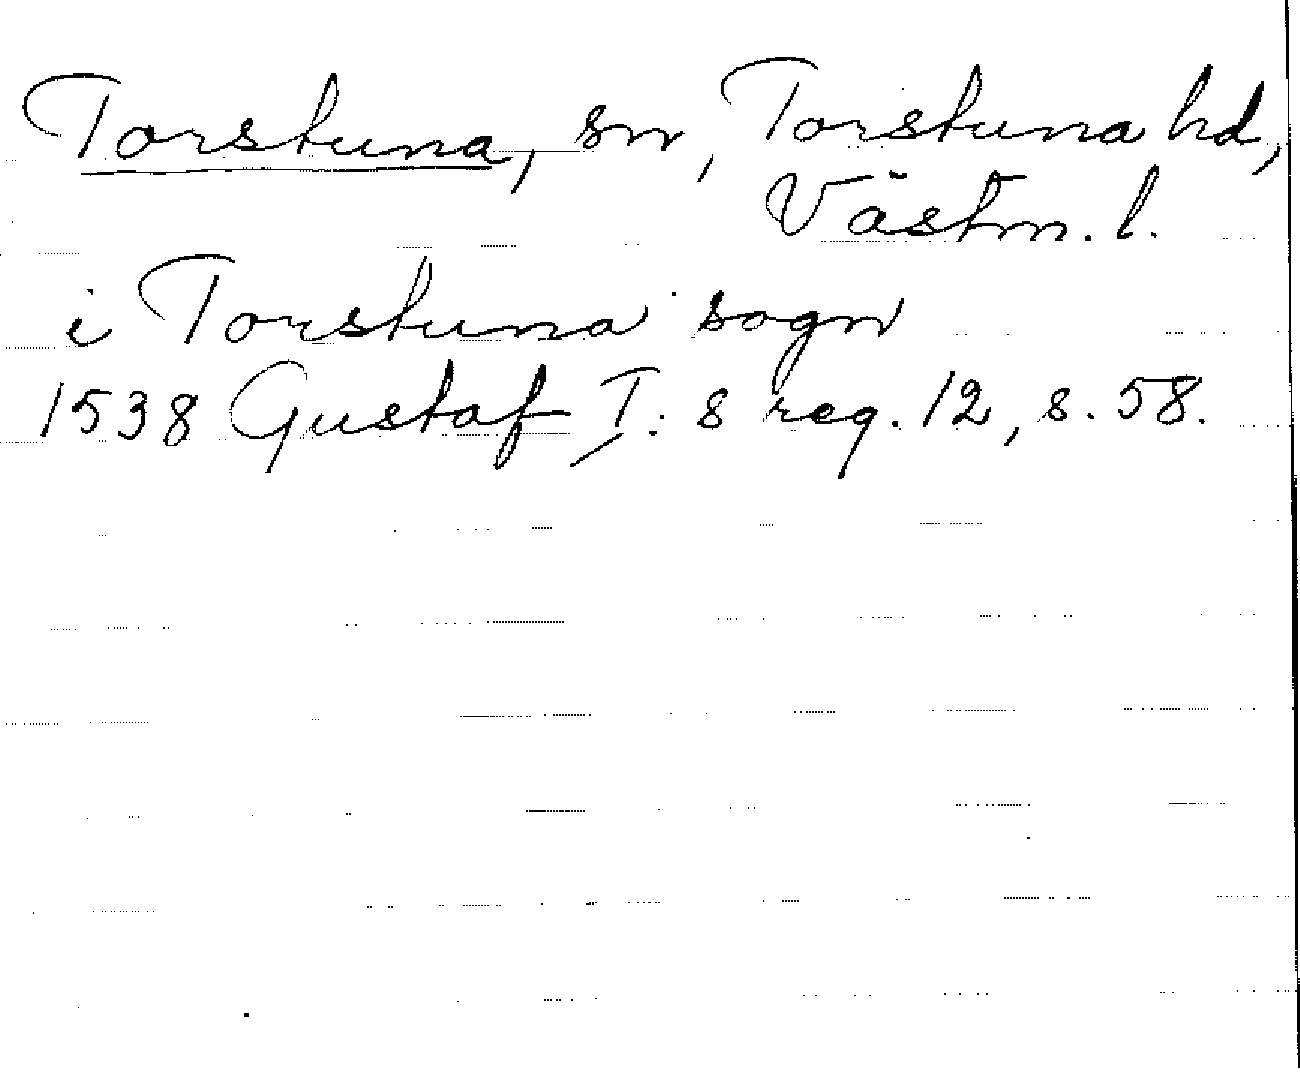 Torstuna, sn, Torstuna hd,
Västm. l.
i Torstuna sogn
1538 Gustaf I:s reg. 12, s. 58.